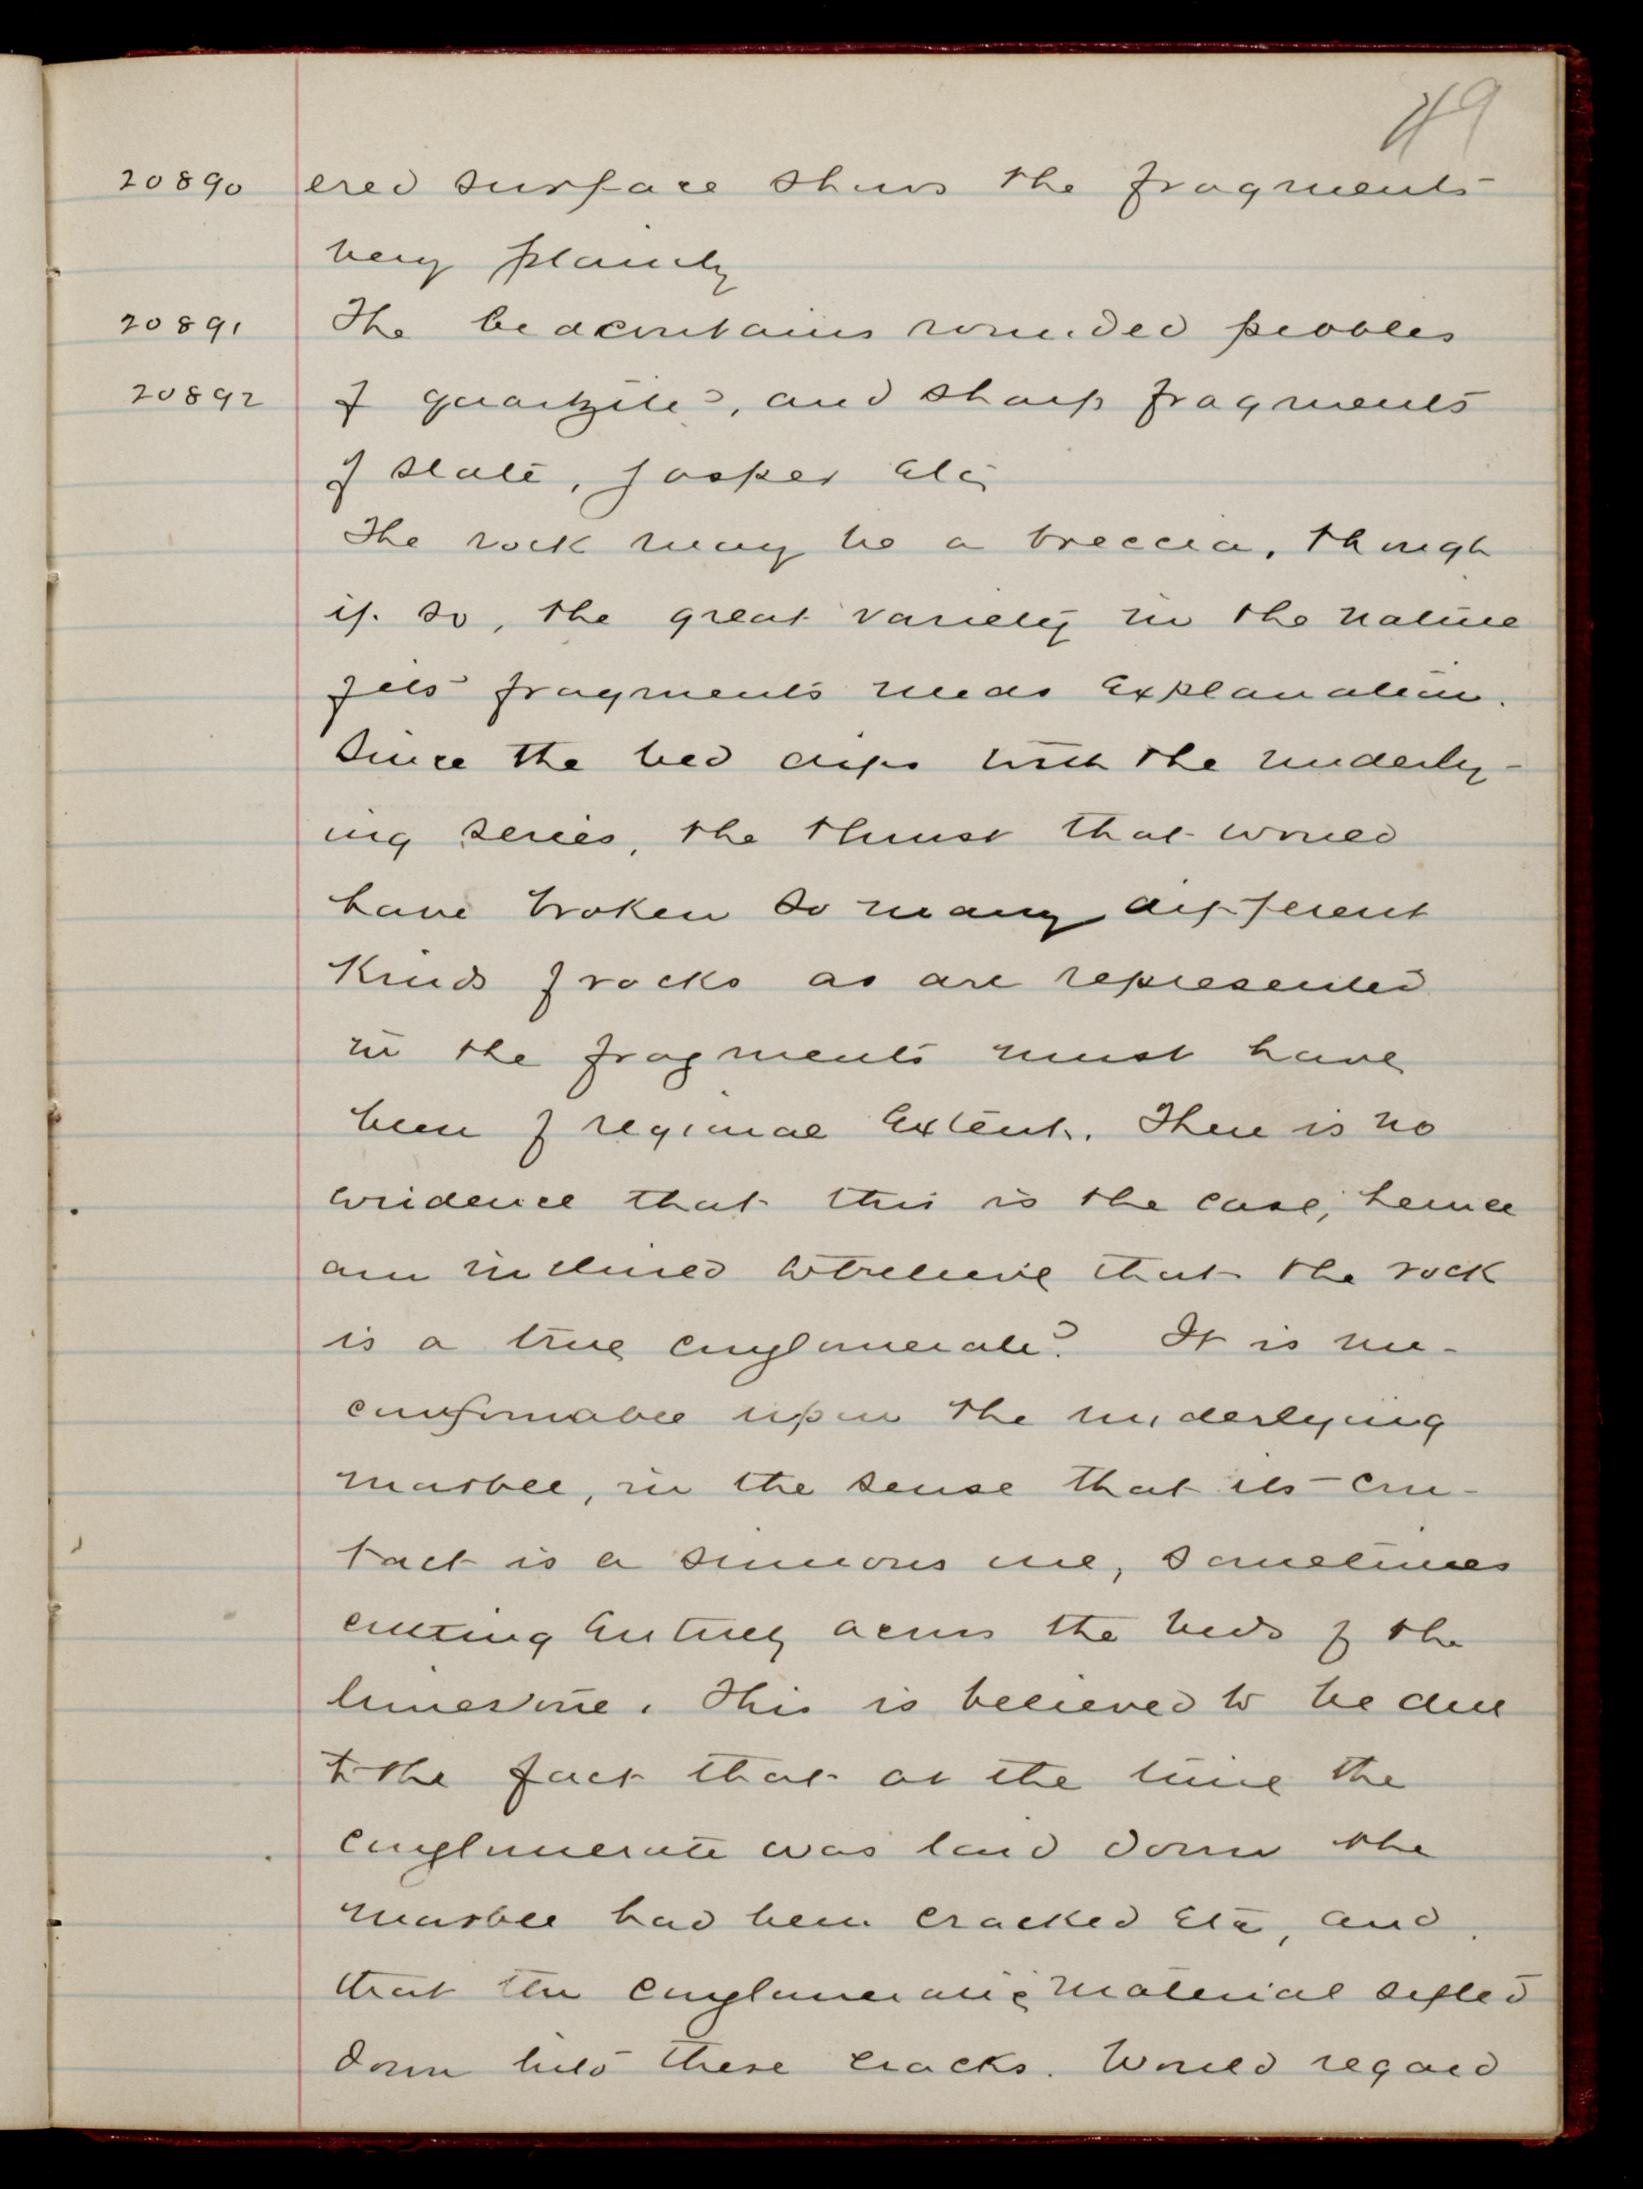 49
20890 ered surface shows the fragments
very plainly
20891 The bed contains rounded pebbles
20892 of quartzite, and sharp fragments
of slate, jasper etc.
The rock may be a breccia, though
if so, the great variety in the nature
of its fragments needs explanation.
Since the bed dips with the underly-
ing series, the thrust that would
have broken so many different
kinds of rocks as are represented
in the fragments must have
been of regional extent. There is no
evidence that this is the case, hence
am inclined to believe that the rock
is a true conglomerate? It is un-
conformable upon the underlying
marble, in the sense that its con-
tact is a sinuous one, sometimes
cutting entirely across the beds of the
limestone. This is believed to be due
to the fact that at the time the
conglomerate was laid down the
marble had been cracked etc, and
that the conglomeratic material sifted
down into these cracks. Would regard